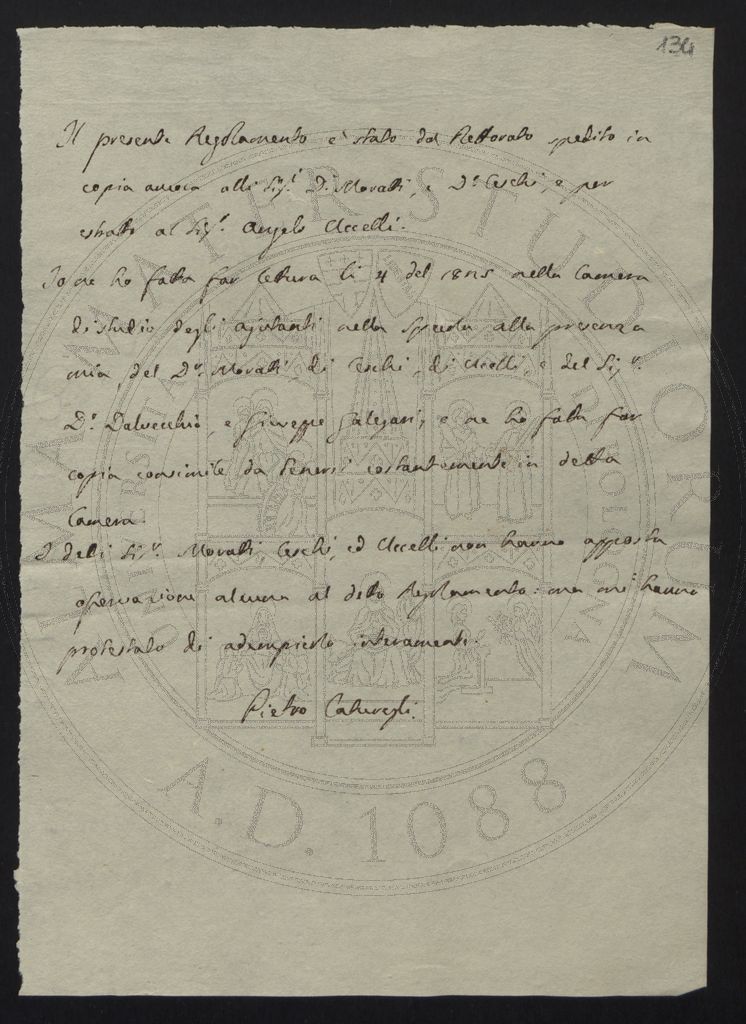 134
Il presente Regolamento è stato dal Rettorato spedito in
copia ancora alli Sig.i D.r Moratti, e D.r Ceschi, e per
estratto al Sig.r Angelo Uccelli.
Io ne ho fatta far lettura li 4 del 1815 nella Camera
di studio degli ajutanti nella Specola alla presenza
mia, del D.r Moratti, di Ceschi, di Uccelli, e del Sig.r
D.r Dalvecchio, e Giuseppe e ne ho fatta far
copia consimile da tenersi costantemente in detta
Camera.
I detti Sig.ri Moratti, Ceschi, ed Uccelli non hanno apposta
osservazione alcuna al detto Regolamento: ma mi hanno
protestato di adempierlo interamente.
Pietro Caturegli.
ALMA MATER STUDIORUM
A.D. 1088